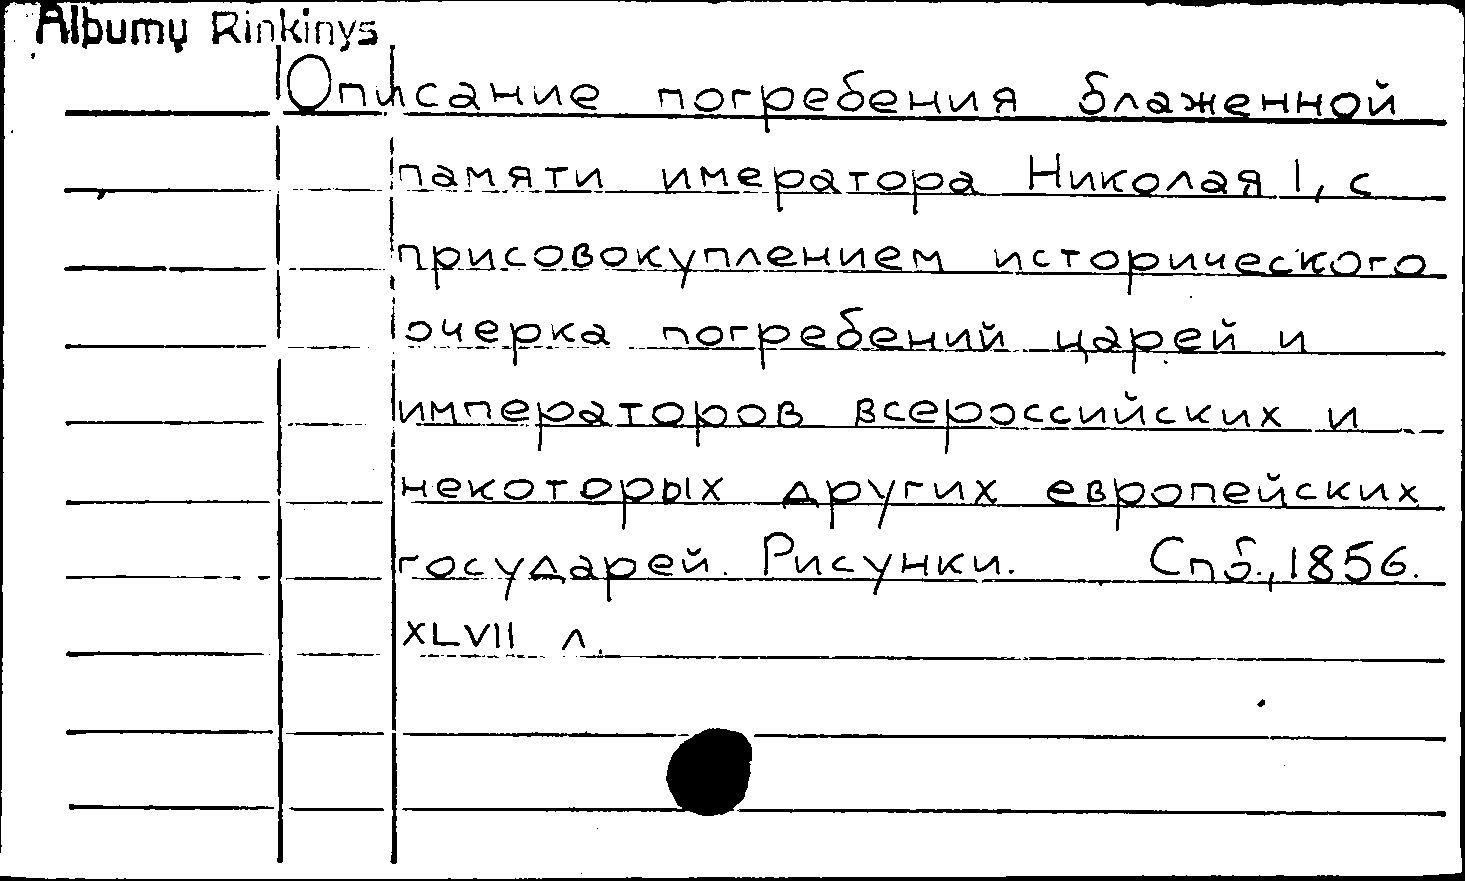 Albumų Rinkinys
Описание погребения блаженной
памяти имератора Николая I, с
присовокуплением исторического
очерка погребений царей и
императоров всероссийских и
некоторых других европейских
государей. Рисунки. Спб., 1856.
XLVII л.